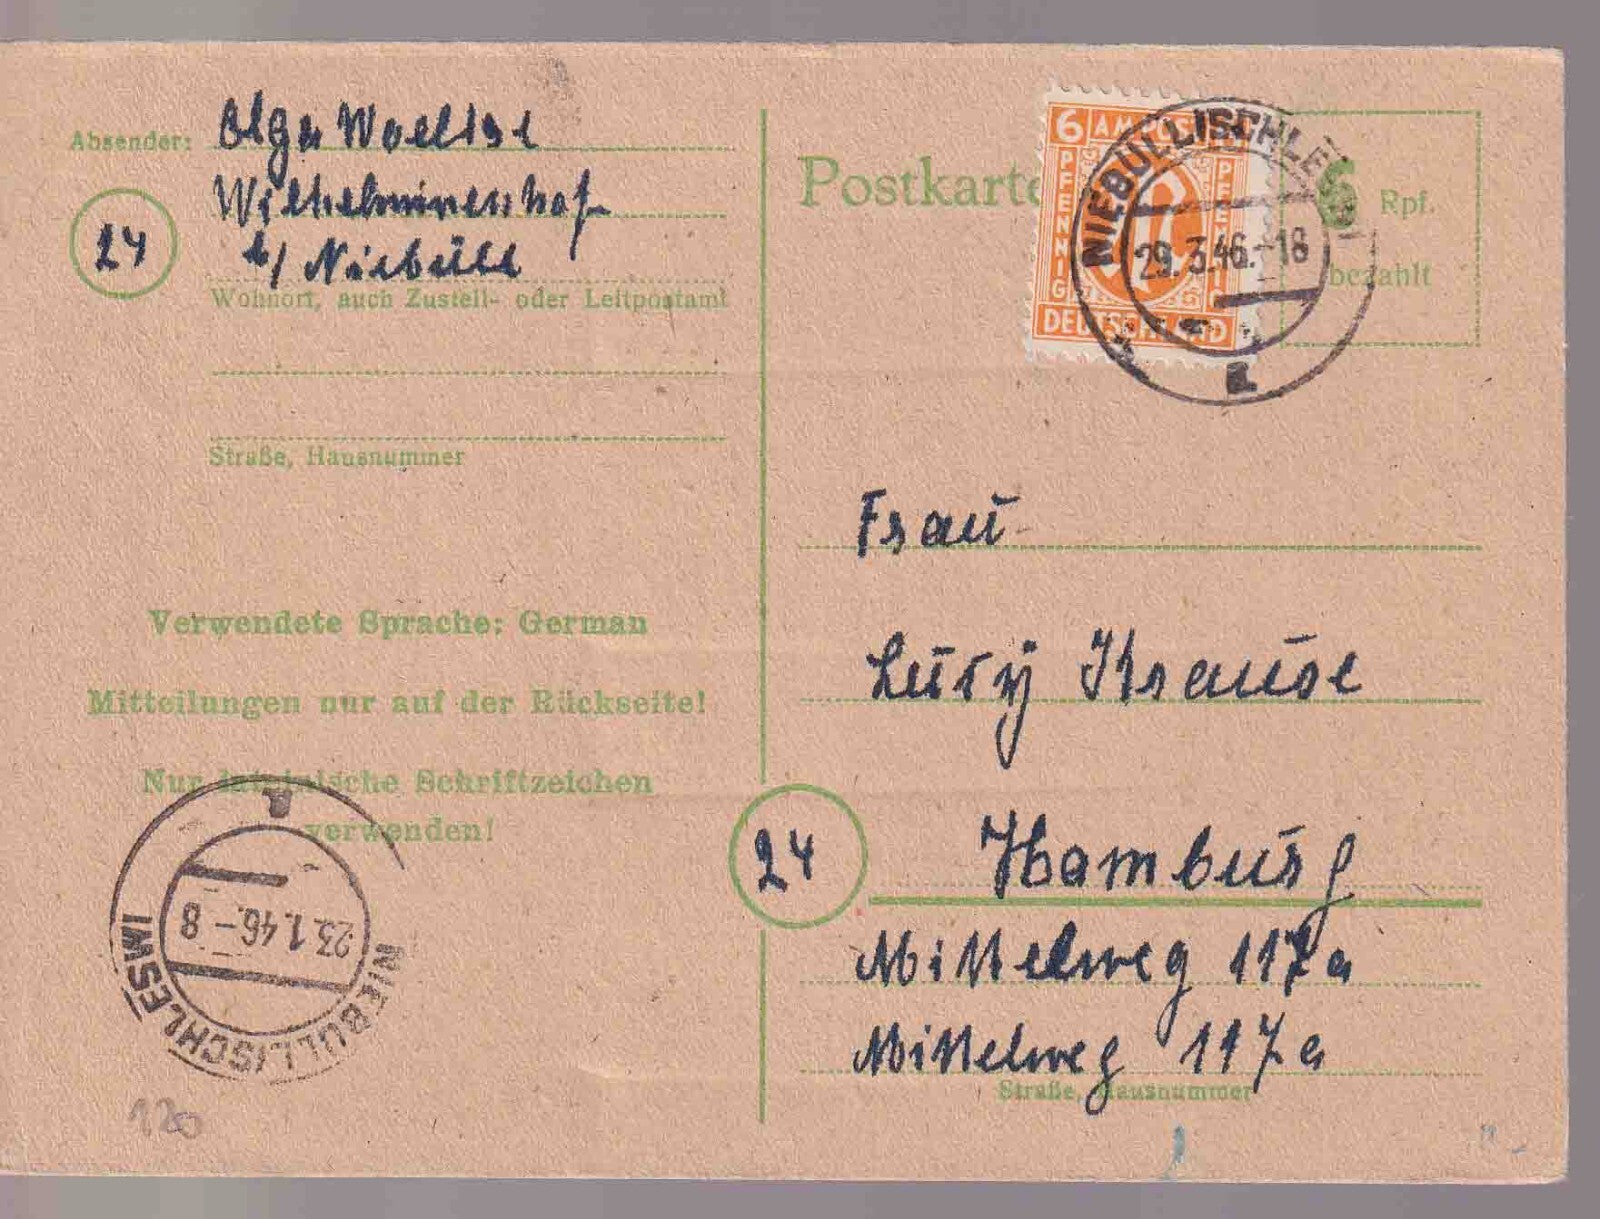 Absender: Olga Woelise
Wilhelminenhof
b/ Niebüll
24
Wohnort, auch Zustell- oder Leitpostamt
Straße, Hausnummer
Verwendete Sprache: German
Mitteilungen nur auf der Rückseite!
Nur lateinische Schriftzeichen
verwenden!
23.1.46.-8
NIEBÜLL (SCHLESW)
120
Postkarte
6 AM POST
PFENNIG
PFENNIG
DEUTSCHLAND
NIEBÜLL (SCHLESW)
29.3.46.-18
a
6 Rpf.
bezahlt
Frau
Lucy Krause
24 Hamburg
Mittelweg 117a
Mittelweg 117a
Straße, Hausnummer